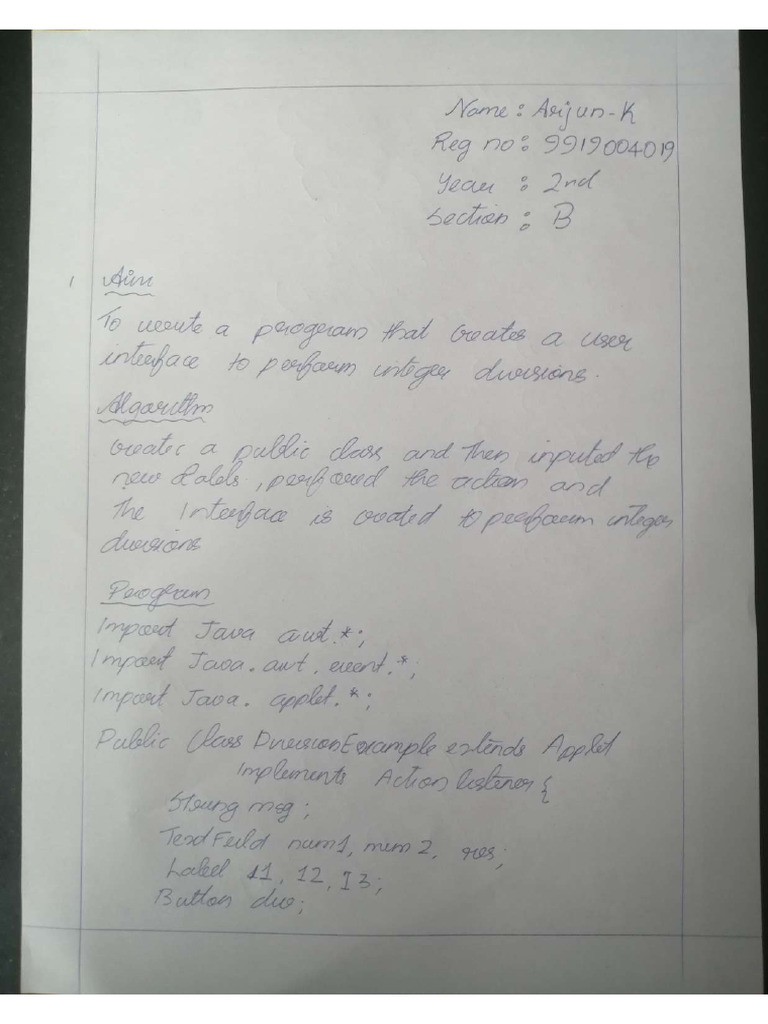 Name : Arjun-K
Reg no : 9919004019
Year : 2nd
Section : B
1 Aim
To write a program that creates a user
interface to perform integer divisions.
Algorithm
Creates a public class and then inputed the
new , perfored the action and
The Interface is created to perform integer
divisions
Program
Import Java awt.*;
Import Java. awt. event.*;
Import Java. applet.*;
Public Class DivisionExample extends Applet
Implements Action listener {
String msg;
TextFeild num1, num2, res;
Label l1, l2, l3;
Button div;